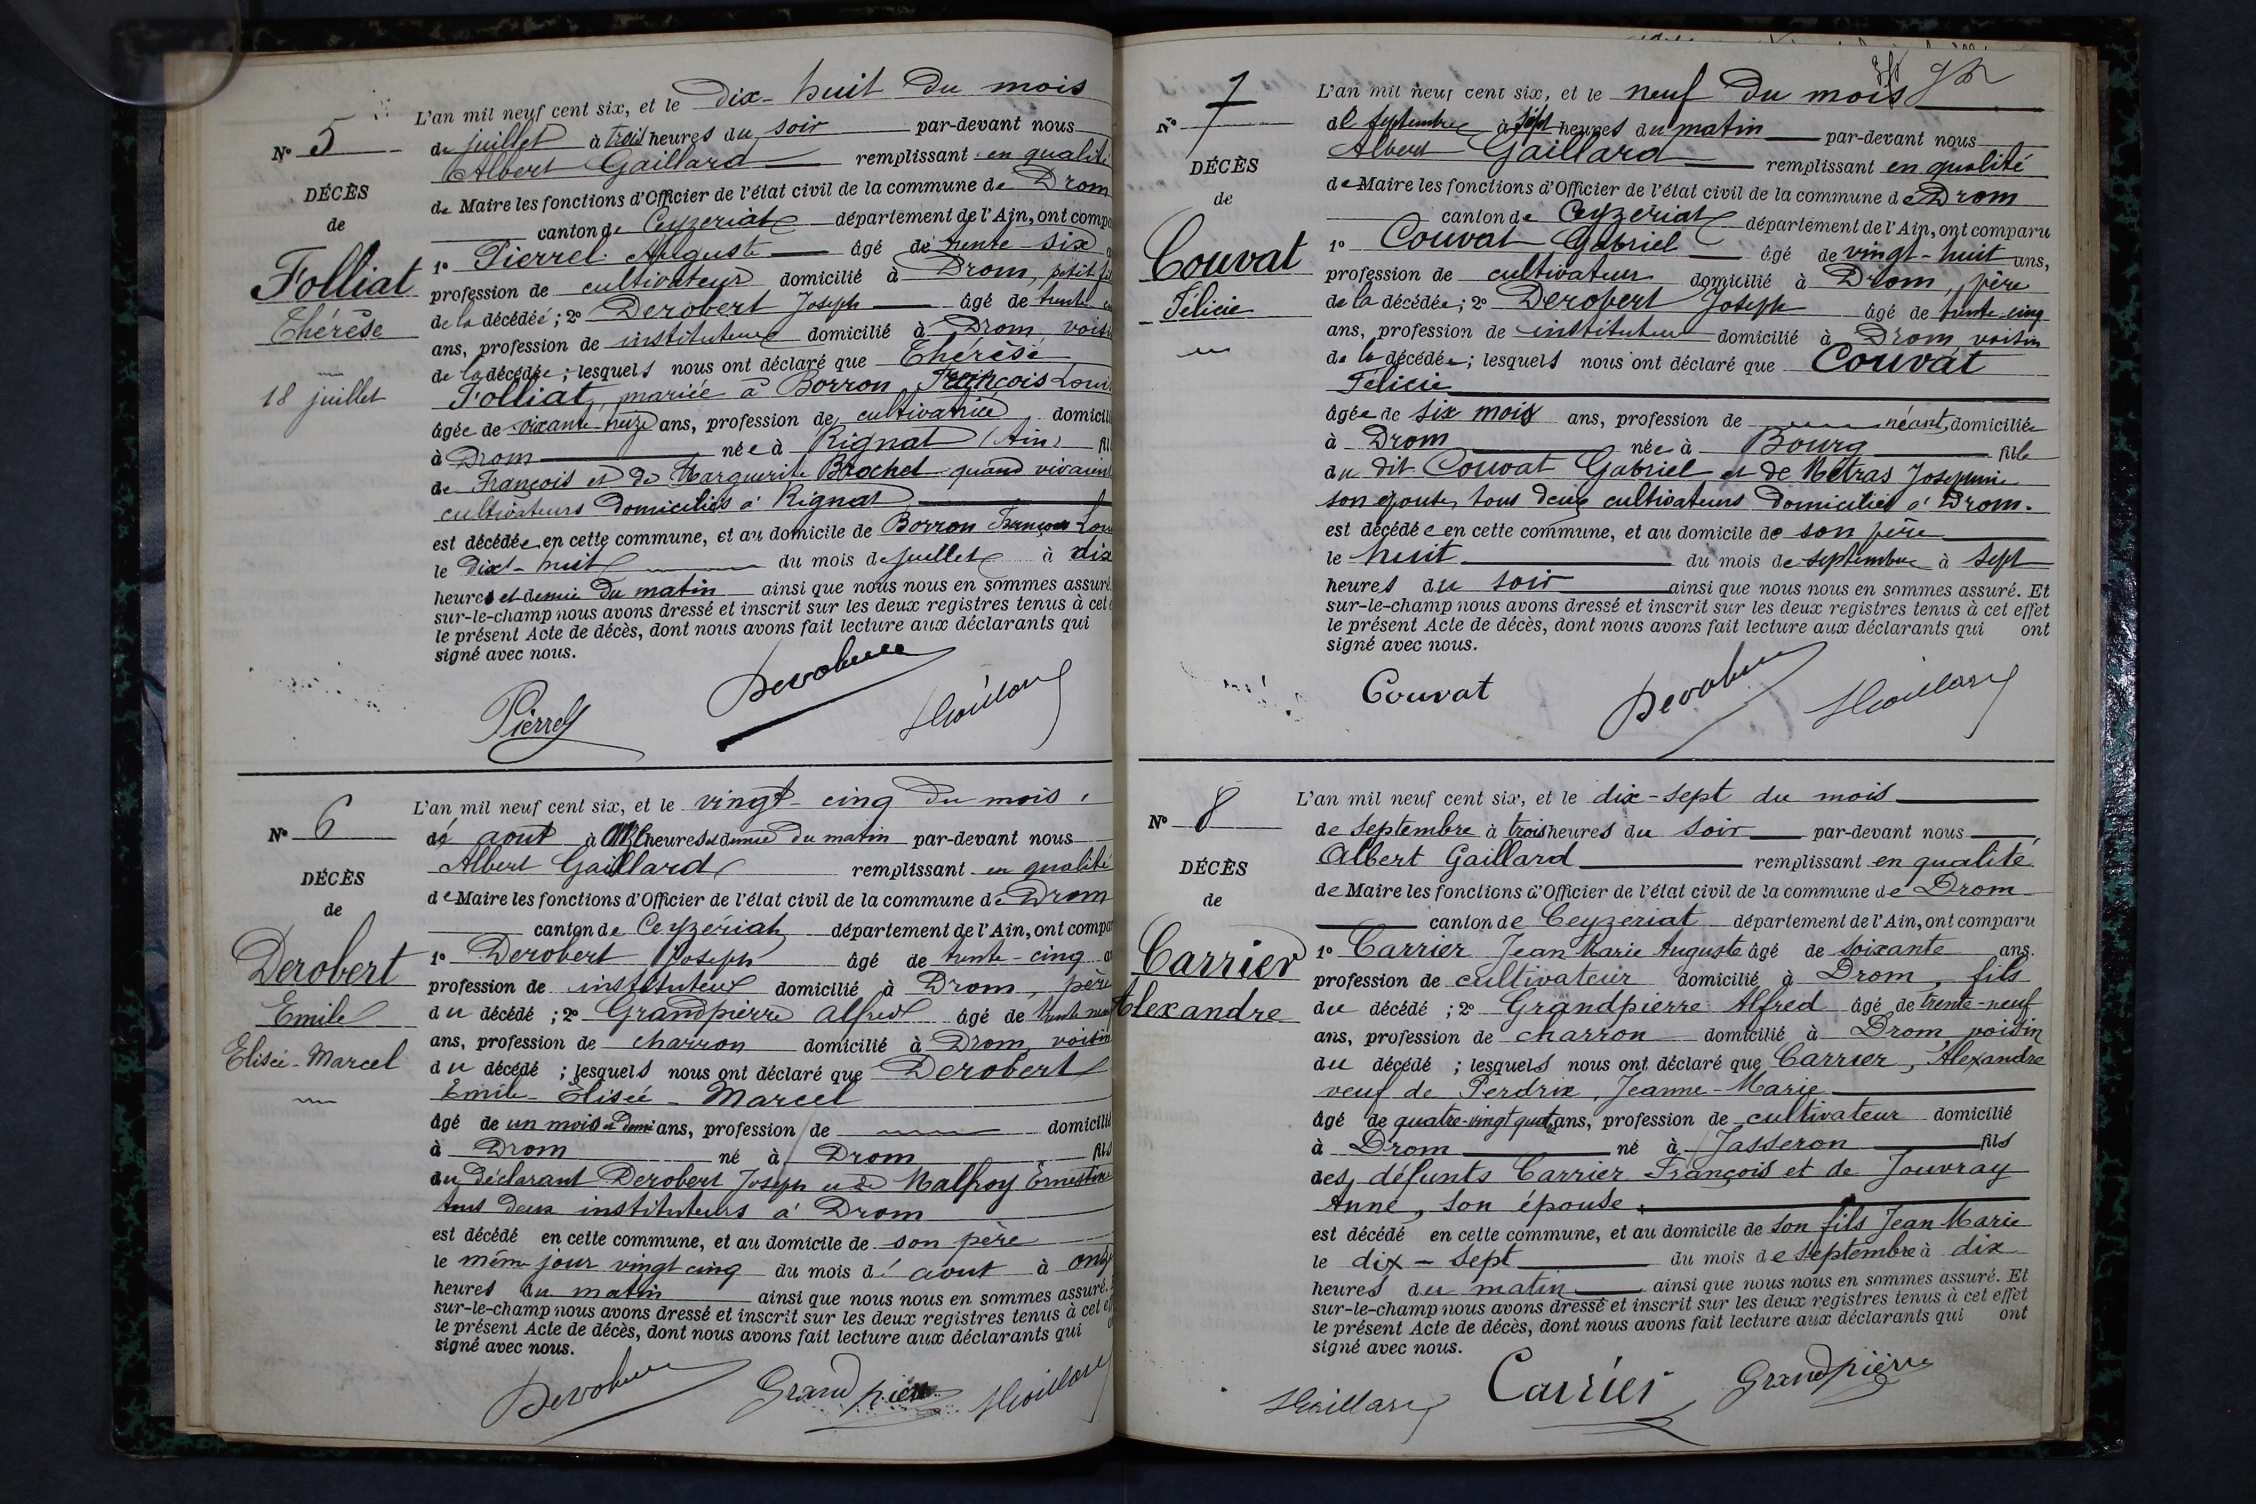 N° 5
DÉCÈS
de
Folliat
Thérèse
18 juillet
L'an mil neuf cent six, et le dix-huit du mois
de juillet à trois heures du soir par-devant nous
Albert Gaillard remplissant en qualité
de Maire les fonctions d'Officier de l'état civil de la commune de Drom
canton de Ceyzeriat département de l'Ain, ont compa
1° Pierrel Auguste âgé de trente-six
profession de cultivateur domicilié à Drom, petit fil
de la décédée ; 2° Derobert Joseph âgé de trente
ans, profession de instituteur domicilié à Drom voisi
de la décédée ; lesquels nous ont déclaré que Thérèse
Folliat, mariée à Borron François Loui
âgée de soixante-treize ans, profession de cultivatrice domicili
à Drom née à Rignat (Ain) fil
de François et de Marguerite Brochet quand vivaient
cultivateurs domiciliés à Rignat
est décédée en cette commune, et au domicile de Borron François Lou
le dix-huit du mois de juillet à dix
heures et demie du matin ainsi que nous nous en sommes assuré.
sur-le-champ nous avons dressé et inscrit sur les deux registres tenus à cet e
le présent Acte de décès, dont nous avons fait lecture aux déclarants qui
signé avec nous.
Pierrel Derobert Gaillard
N° 6
DÉCÈS
de
Derobert
Emile
Elisée-Marcel
L'an mil neuf cent six, et le vingt-cinq du mois
de aout à onze heures et demie du matin par-devant nous
Albert Gaillard remplissant en qualité
de Maire les fonctions d'Officier de l'état civil de la commune de Drom
canton de Ceyzériat département de l'Ain, ont compa
1° Derobert Joseph âgé de trente-cinq a
profession de instituteur domicilié à Drom, père
du décédé ; 2° Grandpierre Alfred âgé de trente neuf
ans, profession de charron domicilié à Drom voisin
du décédé ; lesquels nous ont déclaré que Derobert
Emile-Elisée-Marcel
âgé de un mois et demi ans, profession de domicilié
à Drom né à Drom fils
du déclarant Derobert Joseph et de Malfroy Ernestine
tous deux instituteurs à Drom
est décédé en cette commune, et au domicile de son père
le même jour vingt cinq du mois d'aout à onze
heures du matin ainsi que nous nous en sommes assuré.
sur-le-champ nous avons dressé et inscrit sur les deux registres tenus à cet eff
le présent Acte de décès, dont nous avons fait lecture aux déclarants qui o
signé avec nous.
Derobert Grandpierre Gaillard
N° 7
DÉCÈS
de
Couvat
Félicie
L'an mil neuf cent six, et le neuf du mois
de septembre à sept heures du matin par-devant nous
Albert Gaillard remplissant en qualité
de Maire les fonctions d'Officier de l'état civil de la commune de Drom
canton de Ceyzeriat département de l'Ain, ont comparu
1° Couvat Gabriel âgé de vingt-huit ans,
profession de cultivateur domicilié à Drom, père
de la décédée ; 2° Derobert Joseph âgé de trente-cinq
ans, profession de instituteur domicilié à Drom voisin
de la décédée ; lesquels nous ont déclaré que Couvat
Félicie
âgée de six mois ans, profession de néant, domiciliée
à Drom née à Bourg fille
du dit Couvat Gabriel et de Métras Josephine
son epouse, tous deux cultivateurs domiciliés à Drom.
est décédée en cette commune, et au domicile de son père
le huit du mois de septembre à sept
heures du soir ainsi que nous nous en sommes assuré. Et
sur-le-champ nous avons dressé et inscrit sur les deux registres tenus à cet effet
le présent Acte de décès, dont nous avons fait lecture aux déclarants qui ont
signé avec nous.
Couvat Derobert Gaillard
N° 8
DÉCÈS
de
Carrier
Alexandre
L'an mil neuf cent six, et le dix-sept du mois
de septembre à trois heures du soir par-devant nous
Albert Gaillard remplissant en qualité
de Maire les fonctions d'Officier de l'état civil de la commune de Drom
canton de Ceyzeriat département de l'Ain, ont comparu
1° Carrier Jean Marie Auguste âgé de soixante ans.
profession de cultivateur domicilié à Drom, fils
du décédé ; 2° Grandpierre Alfred âgé de trente-neuf
ans, profession de charron domicilié à Drom voisin
du décédé ; lesquels nous ont déclaré que Carrier, Alexandre
veuf de Perdrix, Jeanne-Marie
âgé de quatre-vingt quatre ans, profession de cultivateur domicilié
à Drom né à Jasseron fils
des défunts Carrier François et de Jouvray
Anne, son épouse.
est décédé en cette commune, et au domicile de son fils Jean Marie
le dix-sept du mois de septembre à dix
heures du matin ainsi que nous nous en sommes assuré. Et
sur-le-champ nous avons dressé et inscrit sur les deux registres tenus à cet effet
le présent Acte de décès, dont nous avons fait lecture aux déclarants qui ont
signé avec nous.
Gaillard Carrier Grandpierre